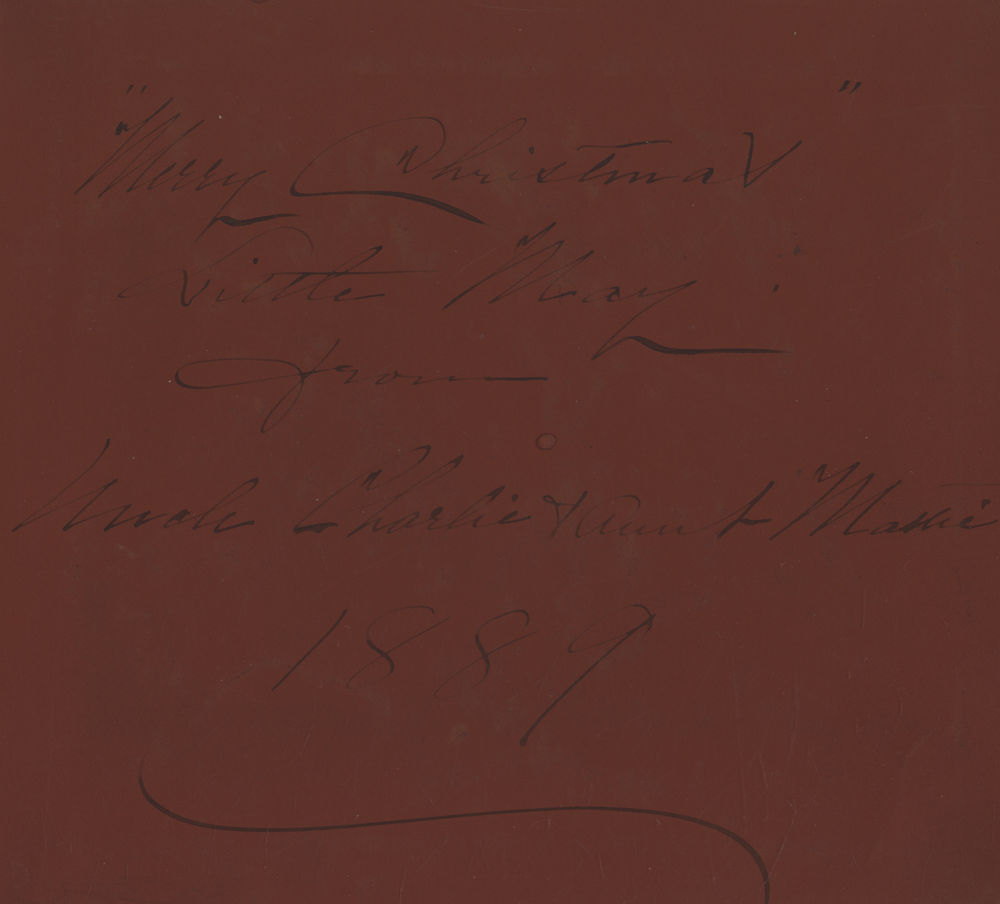 "Merry Christmas"
Little May.
from
Uncle Charlie & Aunt Mattie
1889